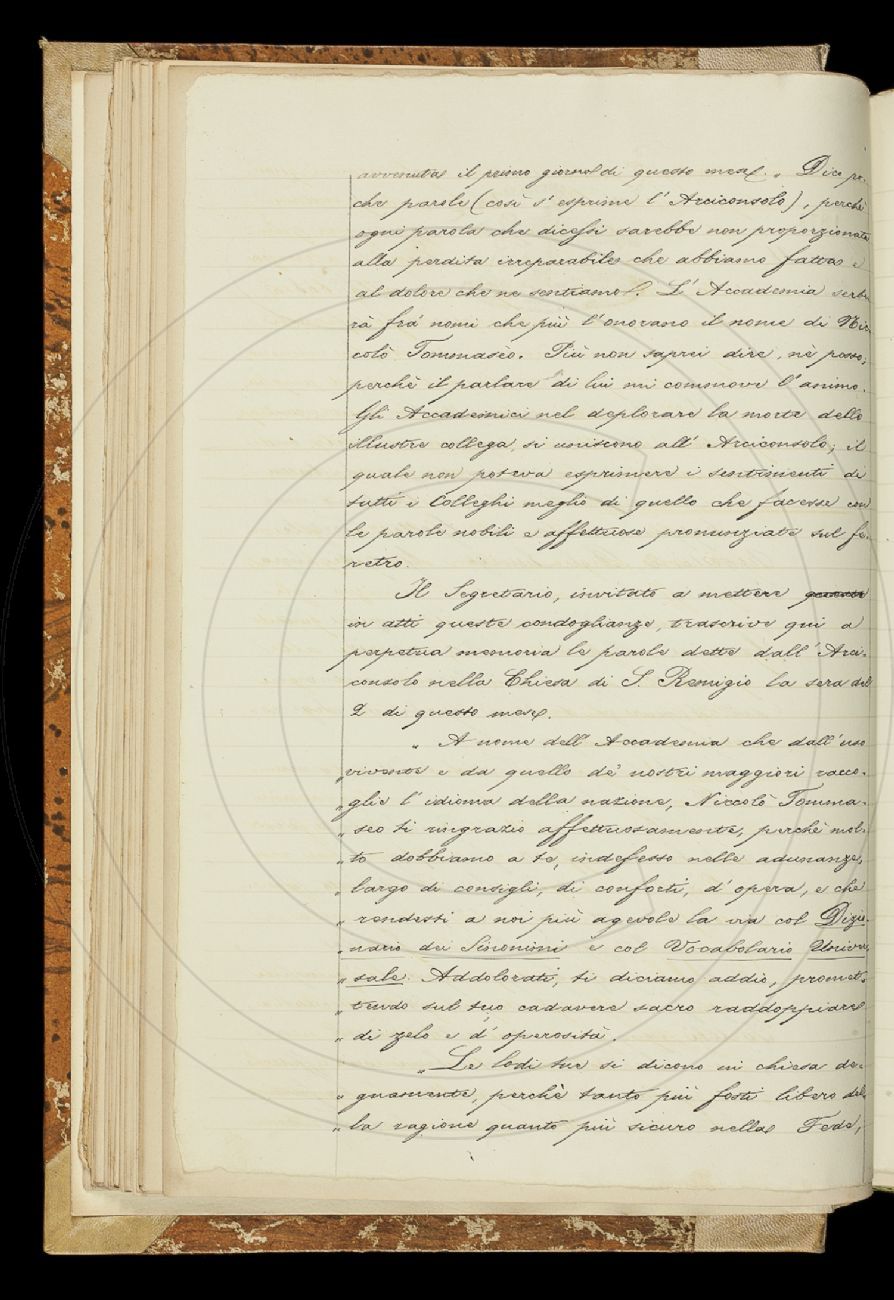 avvenuta il primo giorno di questo mese. „ Dico po-
che parole (così s' esprime l' Arciconsolo), perchè
ogni parola che dicessi sarebbe non proporzionata
alla perdita irreparabile che abbiamo fatta e
al dolore che ne sentiamo. L' Accademia serbe-
rà fra' nomi che più l' onorano il nome di Nic-
colò Tommaseo. Più non saprei dire, nè posso,
perchè il parlare di lui mi commove l' animo.
Gli Accademici nel deplorare la morte dello
illustre collega, si uniscono all' Arciconsolo; il
quale non poteva esprimere i sentimenti di
tutti i Colleghi meglio di quello che facesse con
le parole nobili e affettuose pronunziate sul fe-
retro.
Il Segretario, invitato a mettere
in atti queste condoglianze, trascrive qui a
perpetua memoria le parole dette dall' Arci-
consolo nella Chiesa di S. Remigio la sera del
2 di questo mese.
„ A nome dell' Accademia che dall' uso
vivente e da quello de' nostri maggiori racco-
„ glie l' idioma della nazione, Niccolò Tomma-
„ seo ti ringrazio affettuosamente, perchè mol-
„ to dobbiamo a te, indefesso nelle adunanze,
„ largo di consigli, di conforti, d' opera, e chè
„ rendesti a noi più agevole la via col Dizio-
„ nario dei Sinonimi e col Vocabolario Univer-
„ sale. Addolorati, ti diciamo addio, promet-
„ tendo sul tuo cadavere sacro raddoppiare
„ di zelo e d' operosità.
„ Le lodi tue si dicono in chiesa de-
„ gnamente, perchè tanto più fosti libero del-
„ la ragione quanto più sicuro nella Fede,